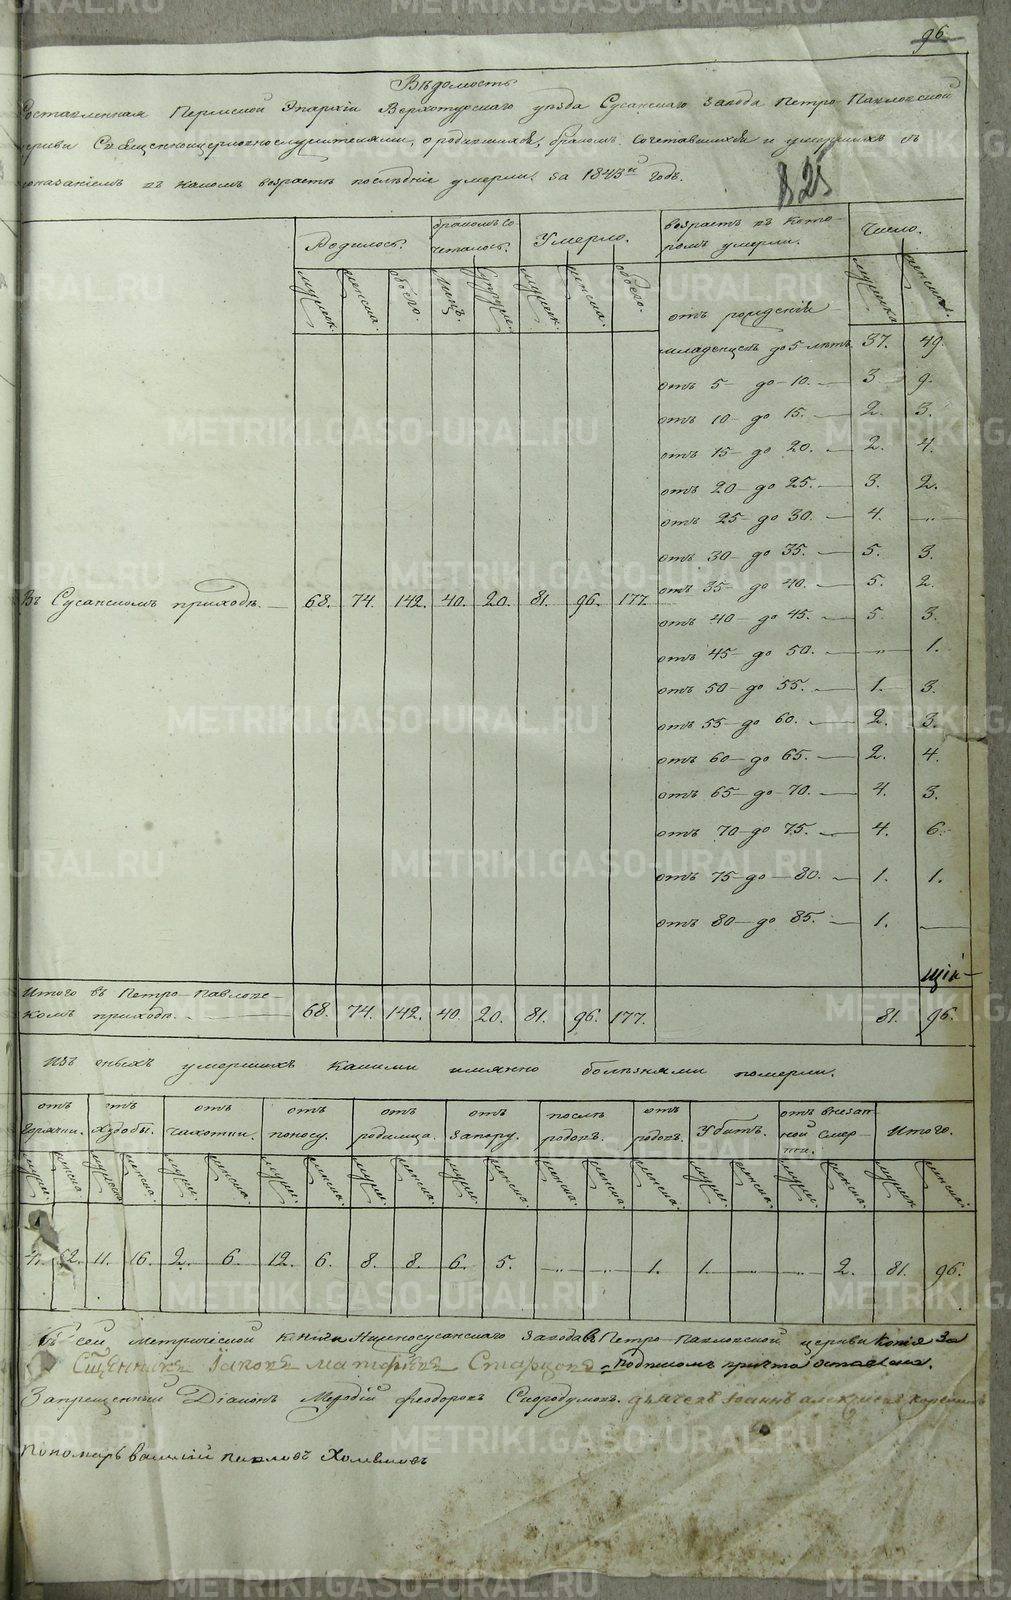 96
Вѣдомость
составленная Пермской Эпархіи Верхотурскаго уѣзда Сусанскаго завода Петро-Павловской
церкви Священноцерковнослужителями, о родившихся, бракомъ сочетавшихся и умершихъ съ
показаніемъ въ какомъ возрастѣ послѣдніе умерли, за 1843й годъ.
825
Родилось. бракомъ сочеталось. Умерло. возрастъ въ которомъ умерли. Число.
мужеск. женска. обоего. лицъ. Супруж. мужеск. женска. обоего. мужеска женска.
отъ рожденія
младенцевъ до 5 лѣтъ 37. 49.
отъ 5 до 10. 3 9.
отъ 10 до 15. 2. 3.
отъ 15 до 20. 2. 4.
отъ 20 до 25. 3. 2.
отъ 25 до 30. 4. —„—
отъ 30 до 35. 5. 3.
отъ 35 до 40. 5. 2.
Въ Сусанскомъ приходѣ. 68. 74. 142. 40. 20. 81. 96. 177.
отъ 40 до 45. 5. 3.
отъ 45 до 50. —„— 1.
отъ 50 до 55. 1. 3.
отъ 55 до 60. 2. 3.
отъ 60 до 65. 2. 4.
отъ 65 до 70. 4. 3.
отъ 70 до 75. 4. 6.
отъ 75 до 80. 1. 1.
отъ 80 до 85. 1. —
щін-
Итого въ Петро-Павловс-
комъ приходѣ. 68. 74. 142. 40. 20. 81. 96. 177. 81. 96.
Изъ сихъ умершихъ какими имянно болѣзнями померли.
отъ горячки. отъ худобы. отъ чахотки. отъ поносу. отъ родимца. отъ запору. послѣ родовъ. отъ родовъ. Убитъ. отъ внезапной смерти. Итого.
мужес. женска мужеска женска. мужес. женска. мужес. женска. мужес. женска. мужес. женска. женска. женска. женска. мужес. женска. мужес. женска. мужеск женска.
11. 16. 2. 6. 12. 6. 8. 8. 6. 5. —„— —„— 1. 1. —„— —„— 2. 81. 96.
Къ сей метрической книги Нижнесусанскаго завода Петро-Павловской церкви копія за
Сщенникъ Іаковъ Матфеевъ Старцовъ подписомъ причта оставлена.
Запрещенный Діаконъ Меѳодій Феодоровъ Скородумовъ. дьячекъ Іоаннъ
Пономарь Василій Павловъ Холмовъ